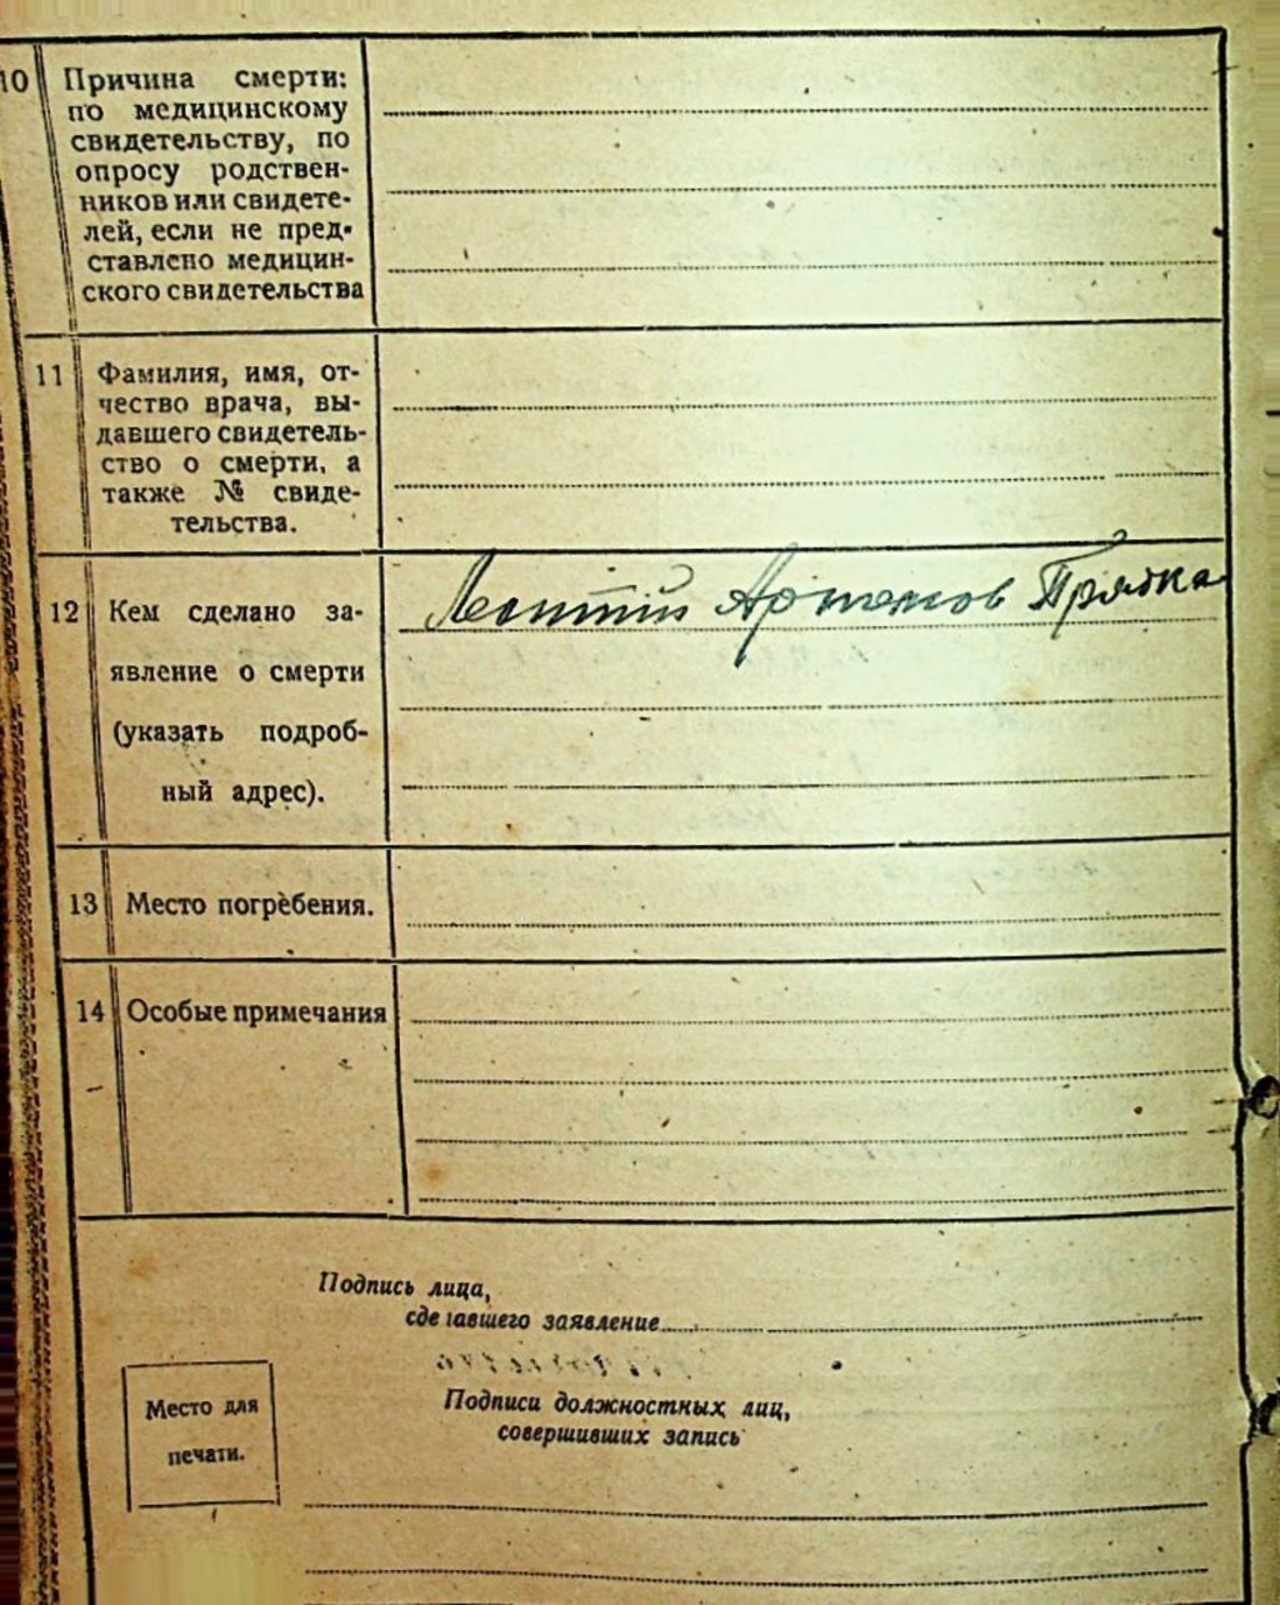 10 Причина смерти:
по медицинскому
свидетельству, по
опросу родствен-
ников или свидете-
лей, если не пред-
ставлено медицин-
ского свидетельства
11 Фамилия, имя, от-
чество врача, вы-
давшего свидетель-
ство о смерти, а
также № свиде-
тельства.
12 Кем сделано за-
явление о смерти
(указать подроб-
ный адрес).
Леонтий Артемов Прядка
13 Место погребения.
14 Особые примечания
Подпись лица,
сделавшего заявление
Подписи должностных лиц,
совершивших запись
Место для
печати.